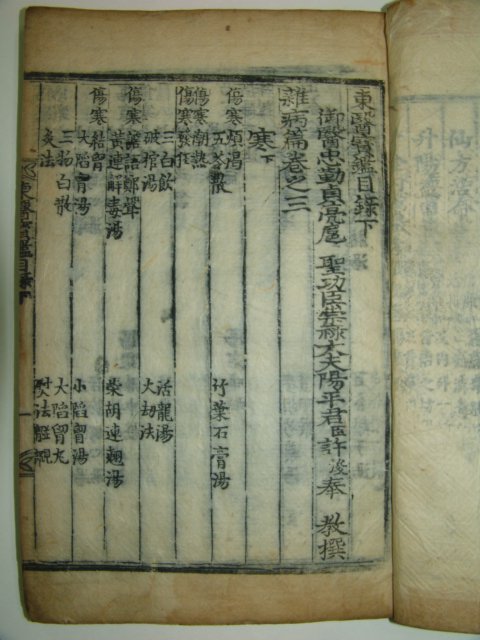 東醫寶鑑目錄下
御醫忠勤貞亮扈聖功臣崇祿大夫陽平君臣許浚奉 教撰
雜病篇卷之三
寒下
傷寒煩渴
五苓散 竹葉石膏湯
傷寒潮熱
傷寒發狂
三白飲 活龍湯
破棺湯 大劫法
傷寒譫語鄭聲
黃連解毒湯 柴胡連翹湯
傷寒結胷
大陷胷湯 小陷胷湯
三物白散 大陷胷丸
灸法 熨法
東醫寶鑑目錄下
一